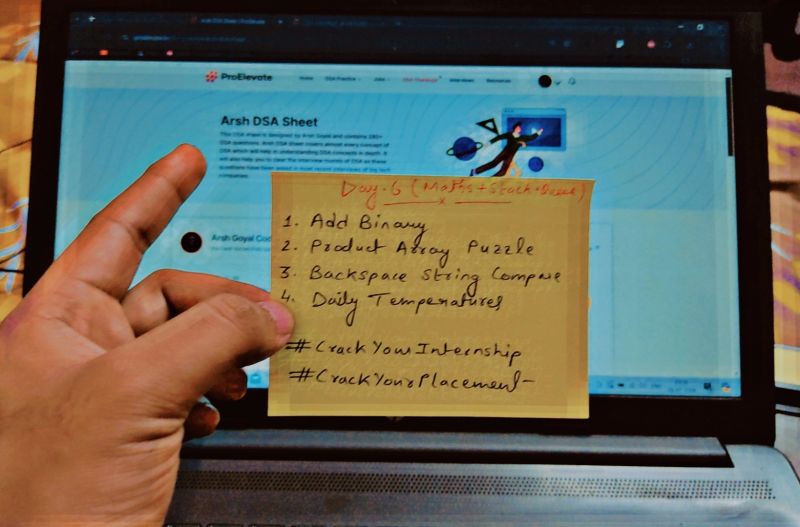 ProElevate
Home DSA Practice Jobs Interviews Resources
Arsh DSA Sheet
This DSA sheet is designed by Arsh Goyal and contains 280+
DSA questions. Arsh DSA sheet covers almost every concept of
DSA which will help in understanding DSA concepts in depth. It
will also help you to clear the interview rounds of DSA as these
questions have been asked in most recent interviews of the tech
companies.
Arsh Goyal Cod
Day-6 (Maths+Stack+Queue)
1. Add Binary
2. Product Array Puzzle
3. Backspace String Compare
4. Daily Temperatures
#CrackYourInternship
#CrackYourPlacement